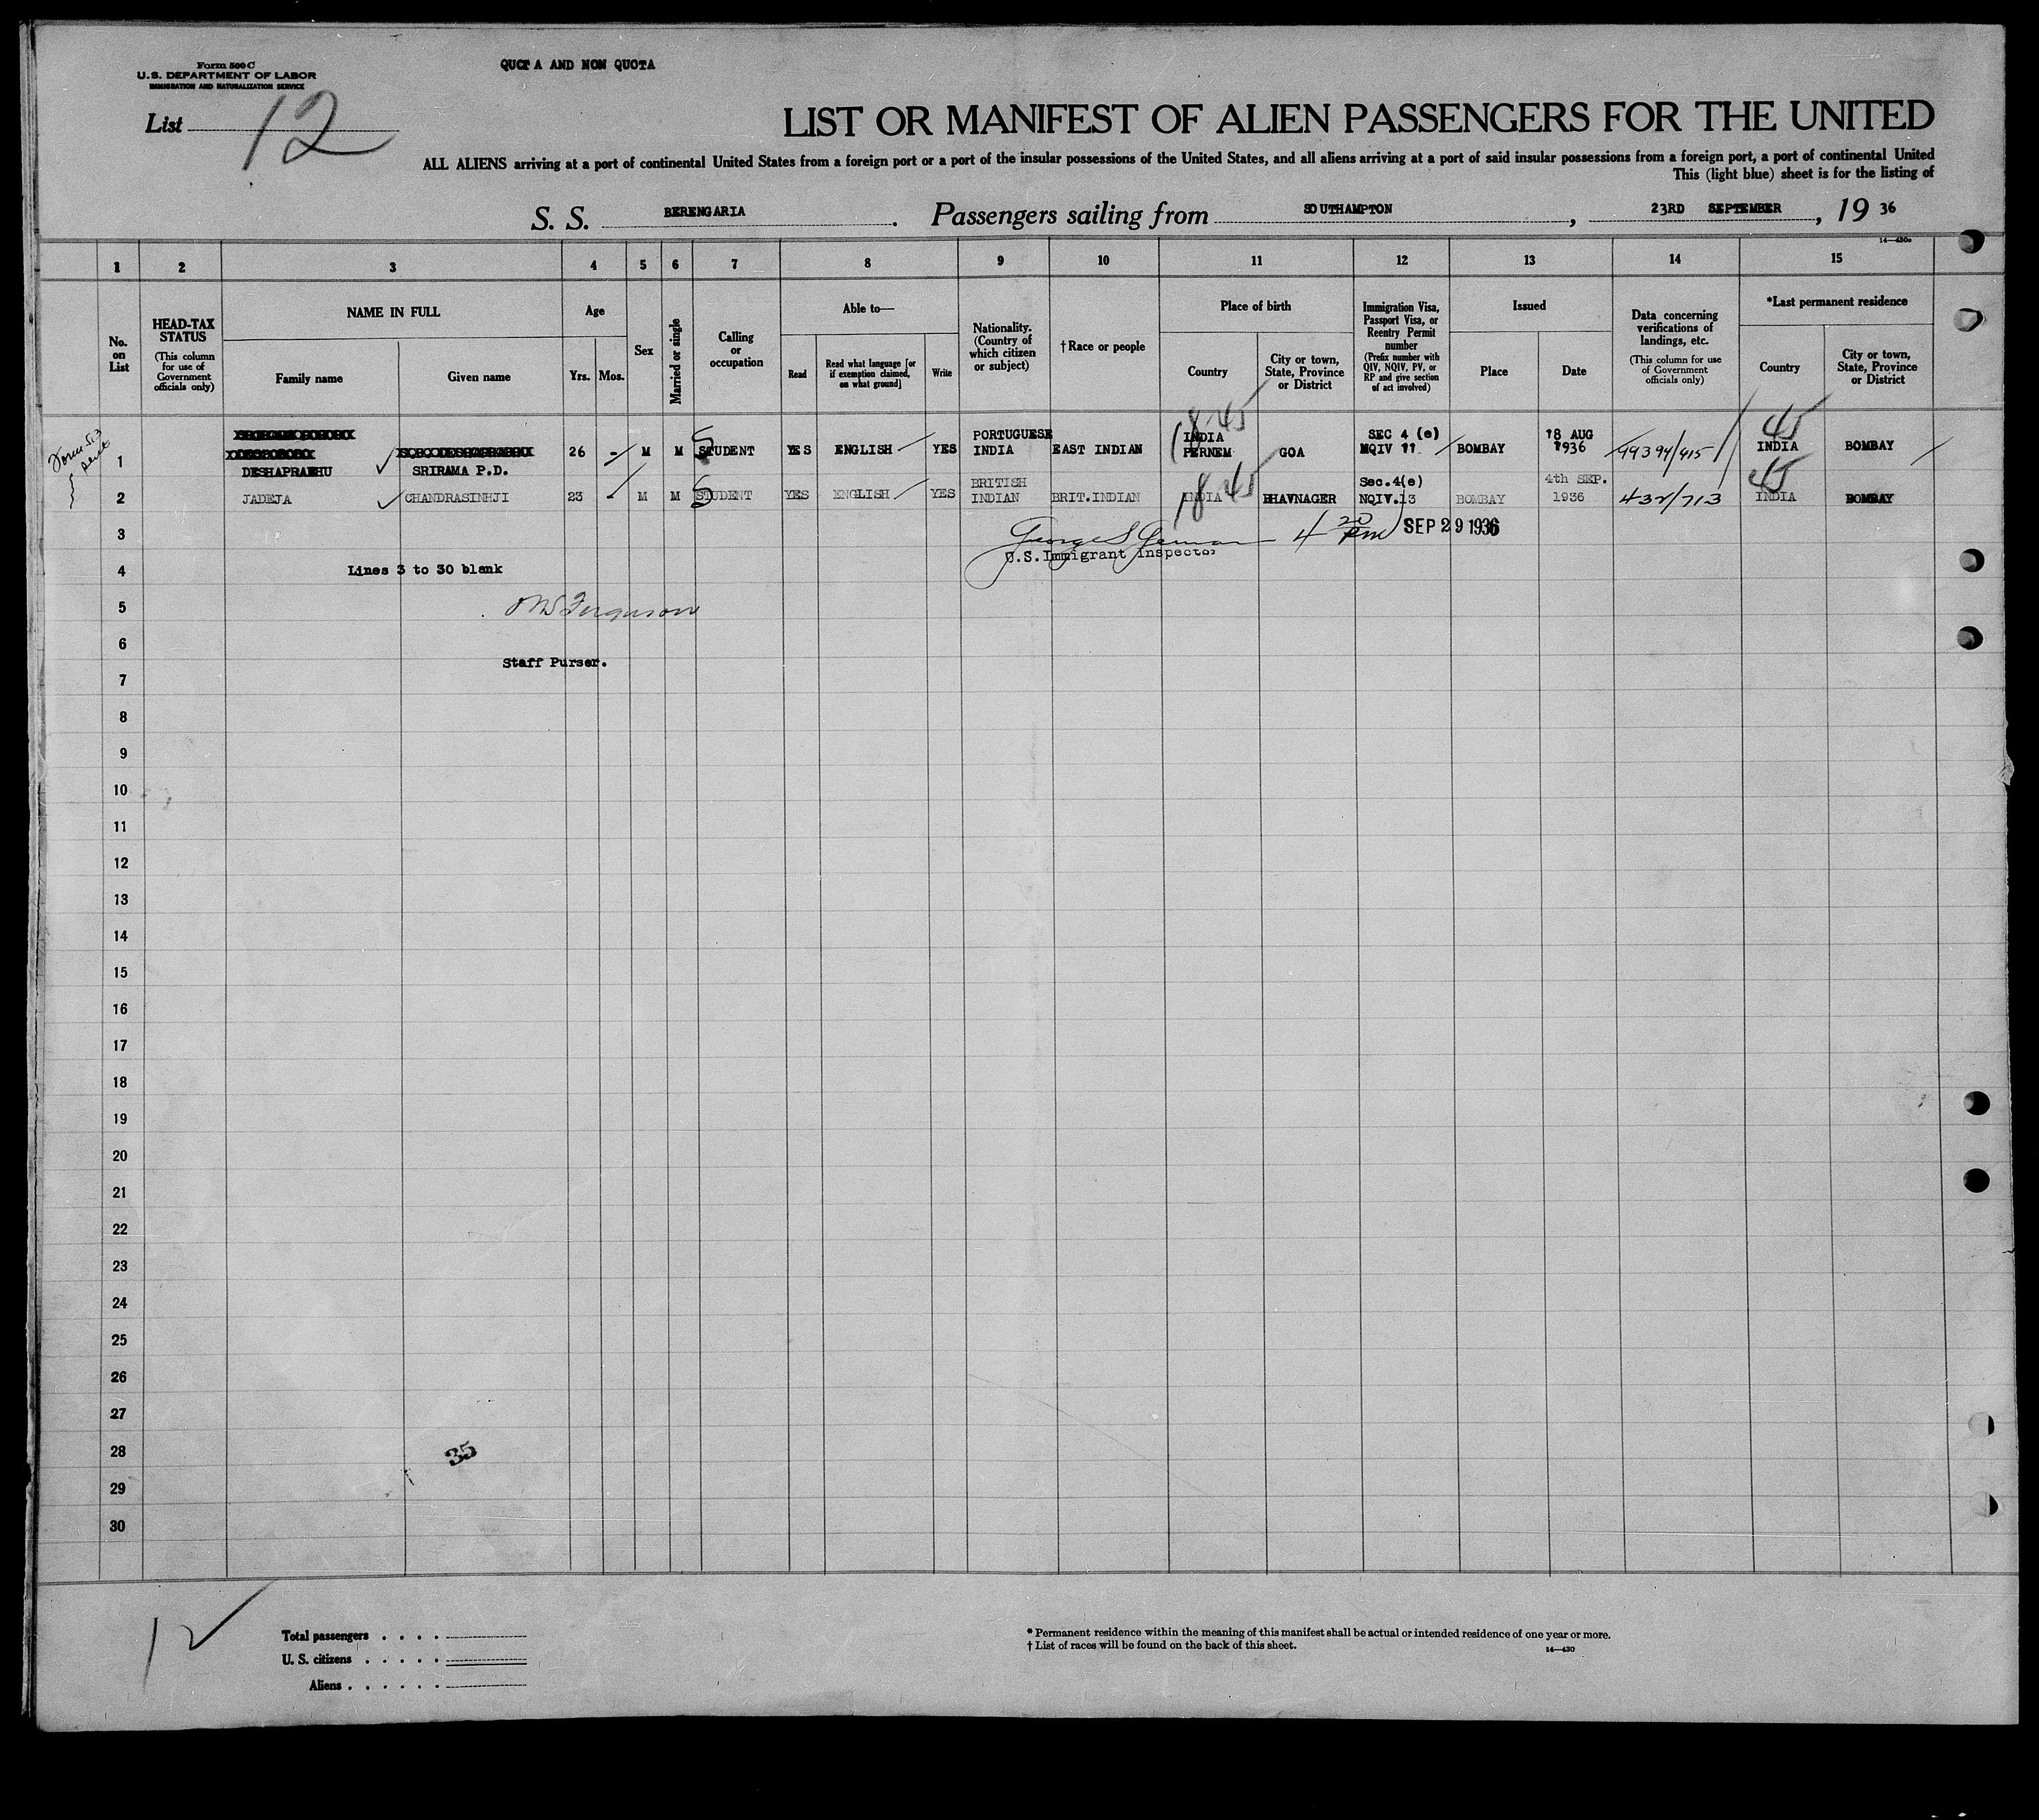 Form 500 C
U.S. DEPARTMENT OF LABOR
IMMIGRATION AND NATURALIZATION SERVICE
QUOTA AND NON QUOTA
List 12
LIST OR MANIFEST OF ALIEN PASSENGERS FOR THE UNITED
ALL ALIENS arriving at a port of continental United States from a foreign port or a port of the insular possessions of the United States, and all aliens arriving at a port of said insular possessions from a foreign port, a port of continental United
This (light blue) sheet is for the listing of
S. S. BERENGARIA. Passengers sailing from SOUTHAMPTON, 23RD SEPTEMBER, 19 36
14—430c
1 2 3 4 5 6 7 8 9 10 11 12 13 14 15
No. on List
HEAD-TAX STATUS
(This column for use of Government officials only)
NAME IN FULL
Family name
Given name
Age
Yrs.
Mos.
Sex
Married or single
Calling or occupation
Able to—
Read
Read what language [or if exemption claimed, on what ground]
Write
Nationality. (Country of which citizen or subject)
†Race or people
Place of birth
Country
City or town, State, Province or District
Immigration Visa, Passport Visa, or Reentry Permit number
(Prefix number with QIV, NQIV, PV, or RP and give section of act involved)
Issued
Place
Date
Data concerning verifications of landings, etc.
(This column for use of Government officials only)
*Last permanent residence
Country
City or town, State, Province or District
Form 513 sent
1 DESHAPRABHU SRIRAMA P.D. 26 - M M S STUDENT YES ENGLISH YES PORTUGUESE INDIA EAST INDIAN INDIA PERNEM GOA SEC 4 (e) NQIV 11 BOMBAY 18 AUG 1936 99394/415 INDIA BOMBAY
18-45 45
2 JADEJA CHANDRASINHJI 23 - M M S STUDENT YES ENGLISH YES BRITISH INDIAN BRIT.INDIAN INDIA BHAVNAGER Sec.4(e) NQIV.13 BOMBAY 4th SEP. 1936 432/713 INDIA BOMBAY
18-45 45
3
George S 4 20 Pm SEP 29 1936
U.S.Immigrant Inspector
4 Lines 3 to 30 blank
5
Ferguson
6
Staff Purser.
7
8
9
10
11
12
13
14
15
16
17
18
19
20
21
22
23
24
25
26
27
28
35
29
30
12
Total passengers . . . .
U. S. citizens . . . . .
Aliens . . . . . .
* Permanent residence within the meaning of this manifest shall be actual or intended residence of one year or more.
† List of races will be found on the back of this sheet.
14—430